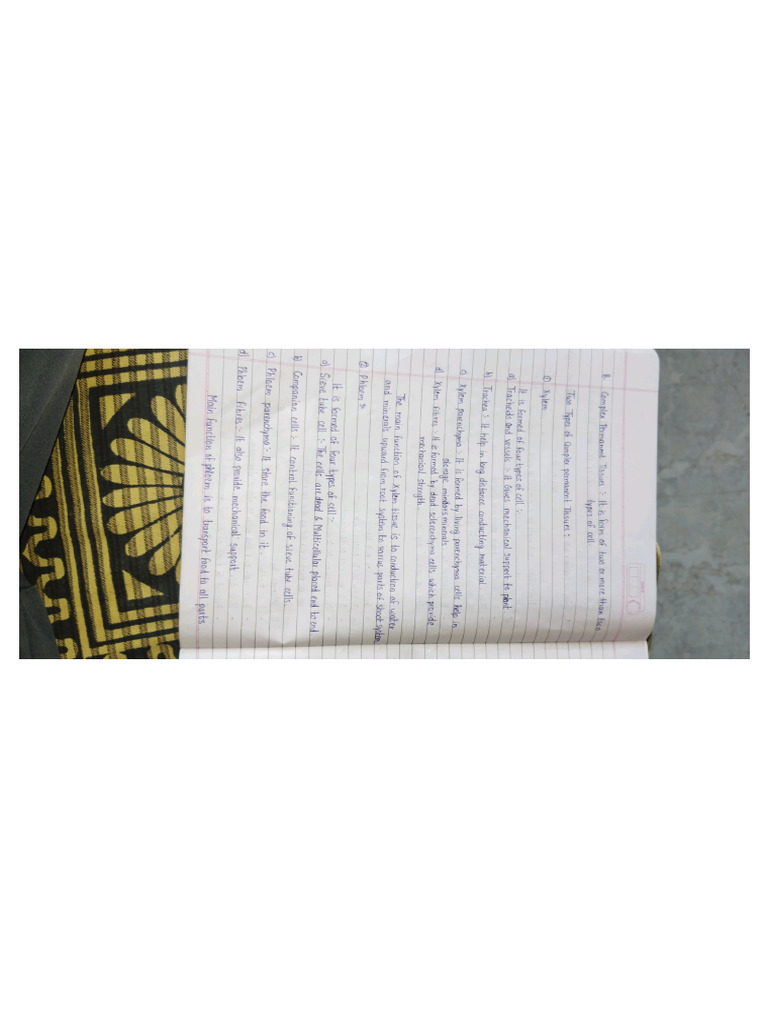 B. Complex Permanent Tissues :- It is form of two or more than two
types of cell.
Two Types of Complex permanent Tissues :-
① Xylem
It is formed of four types of cell :-
a) Tracheids and vessels :- it gives mechanical support to plant
b) Trachea :- It help in long distance conducting material
c) Xylem parenchyma :- It is formed by living parenchyma cells help in
storage minerals
d) Xylem fibres :- It is formed by dead sclerenchyma cells which provide
mechanical strength.
The main function of Xylem tissue is to conduction of water
and minerals upward from root system to various parts of shoot system
② Phloem :-
It is formed of four types of cell :-
a) Sieve tube cell :- The cells are dead & Multicellular placed end to end
b) Companian cells :- It control functioning of sieve tube cells
c) Phloem parenchyma :- It store the food in it.
d) Phloem Fibres :- It also provide mechanical support
Main function of phloem is to transport food to all parts